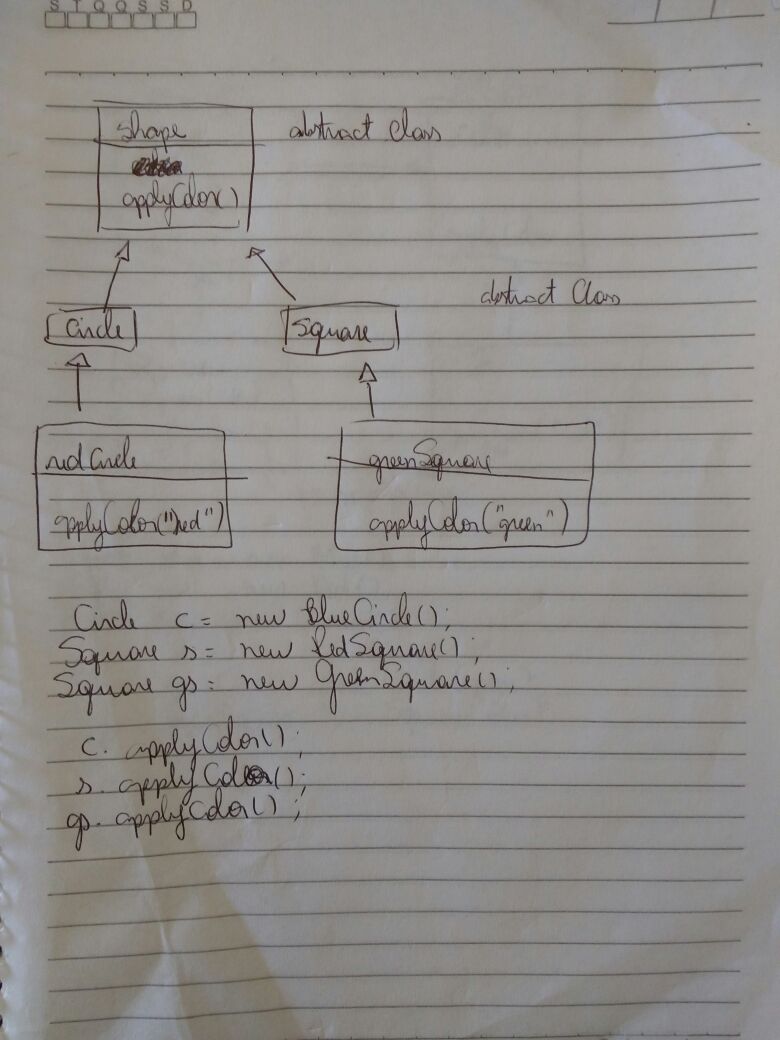 S T Q Q S S D
shape abstract Class
applyColor()
abstract Class
Circle Square
redCircle greenSquare
applyColor("red") applyColor("green")
Circle c = new BlueCircle();
Square s = new RedSquare();
Square gs = new GreenSquare();
c. applyColor();
s. applyColor();
gs. applyColor();